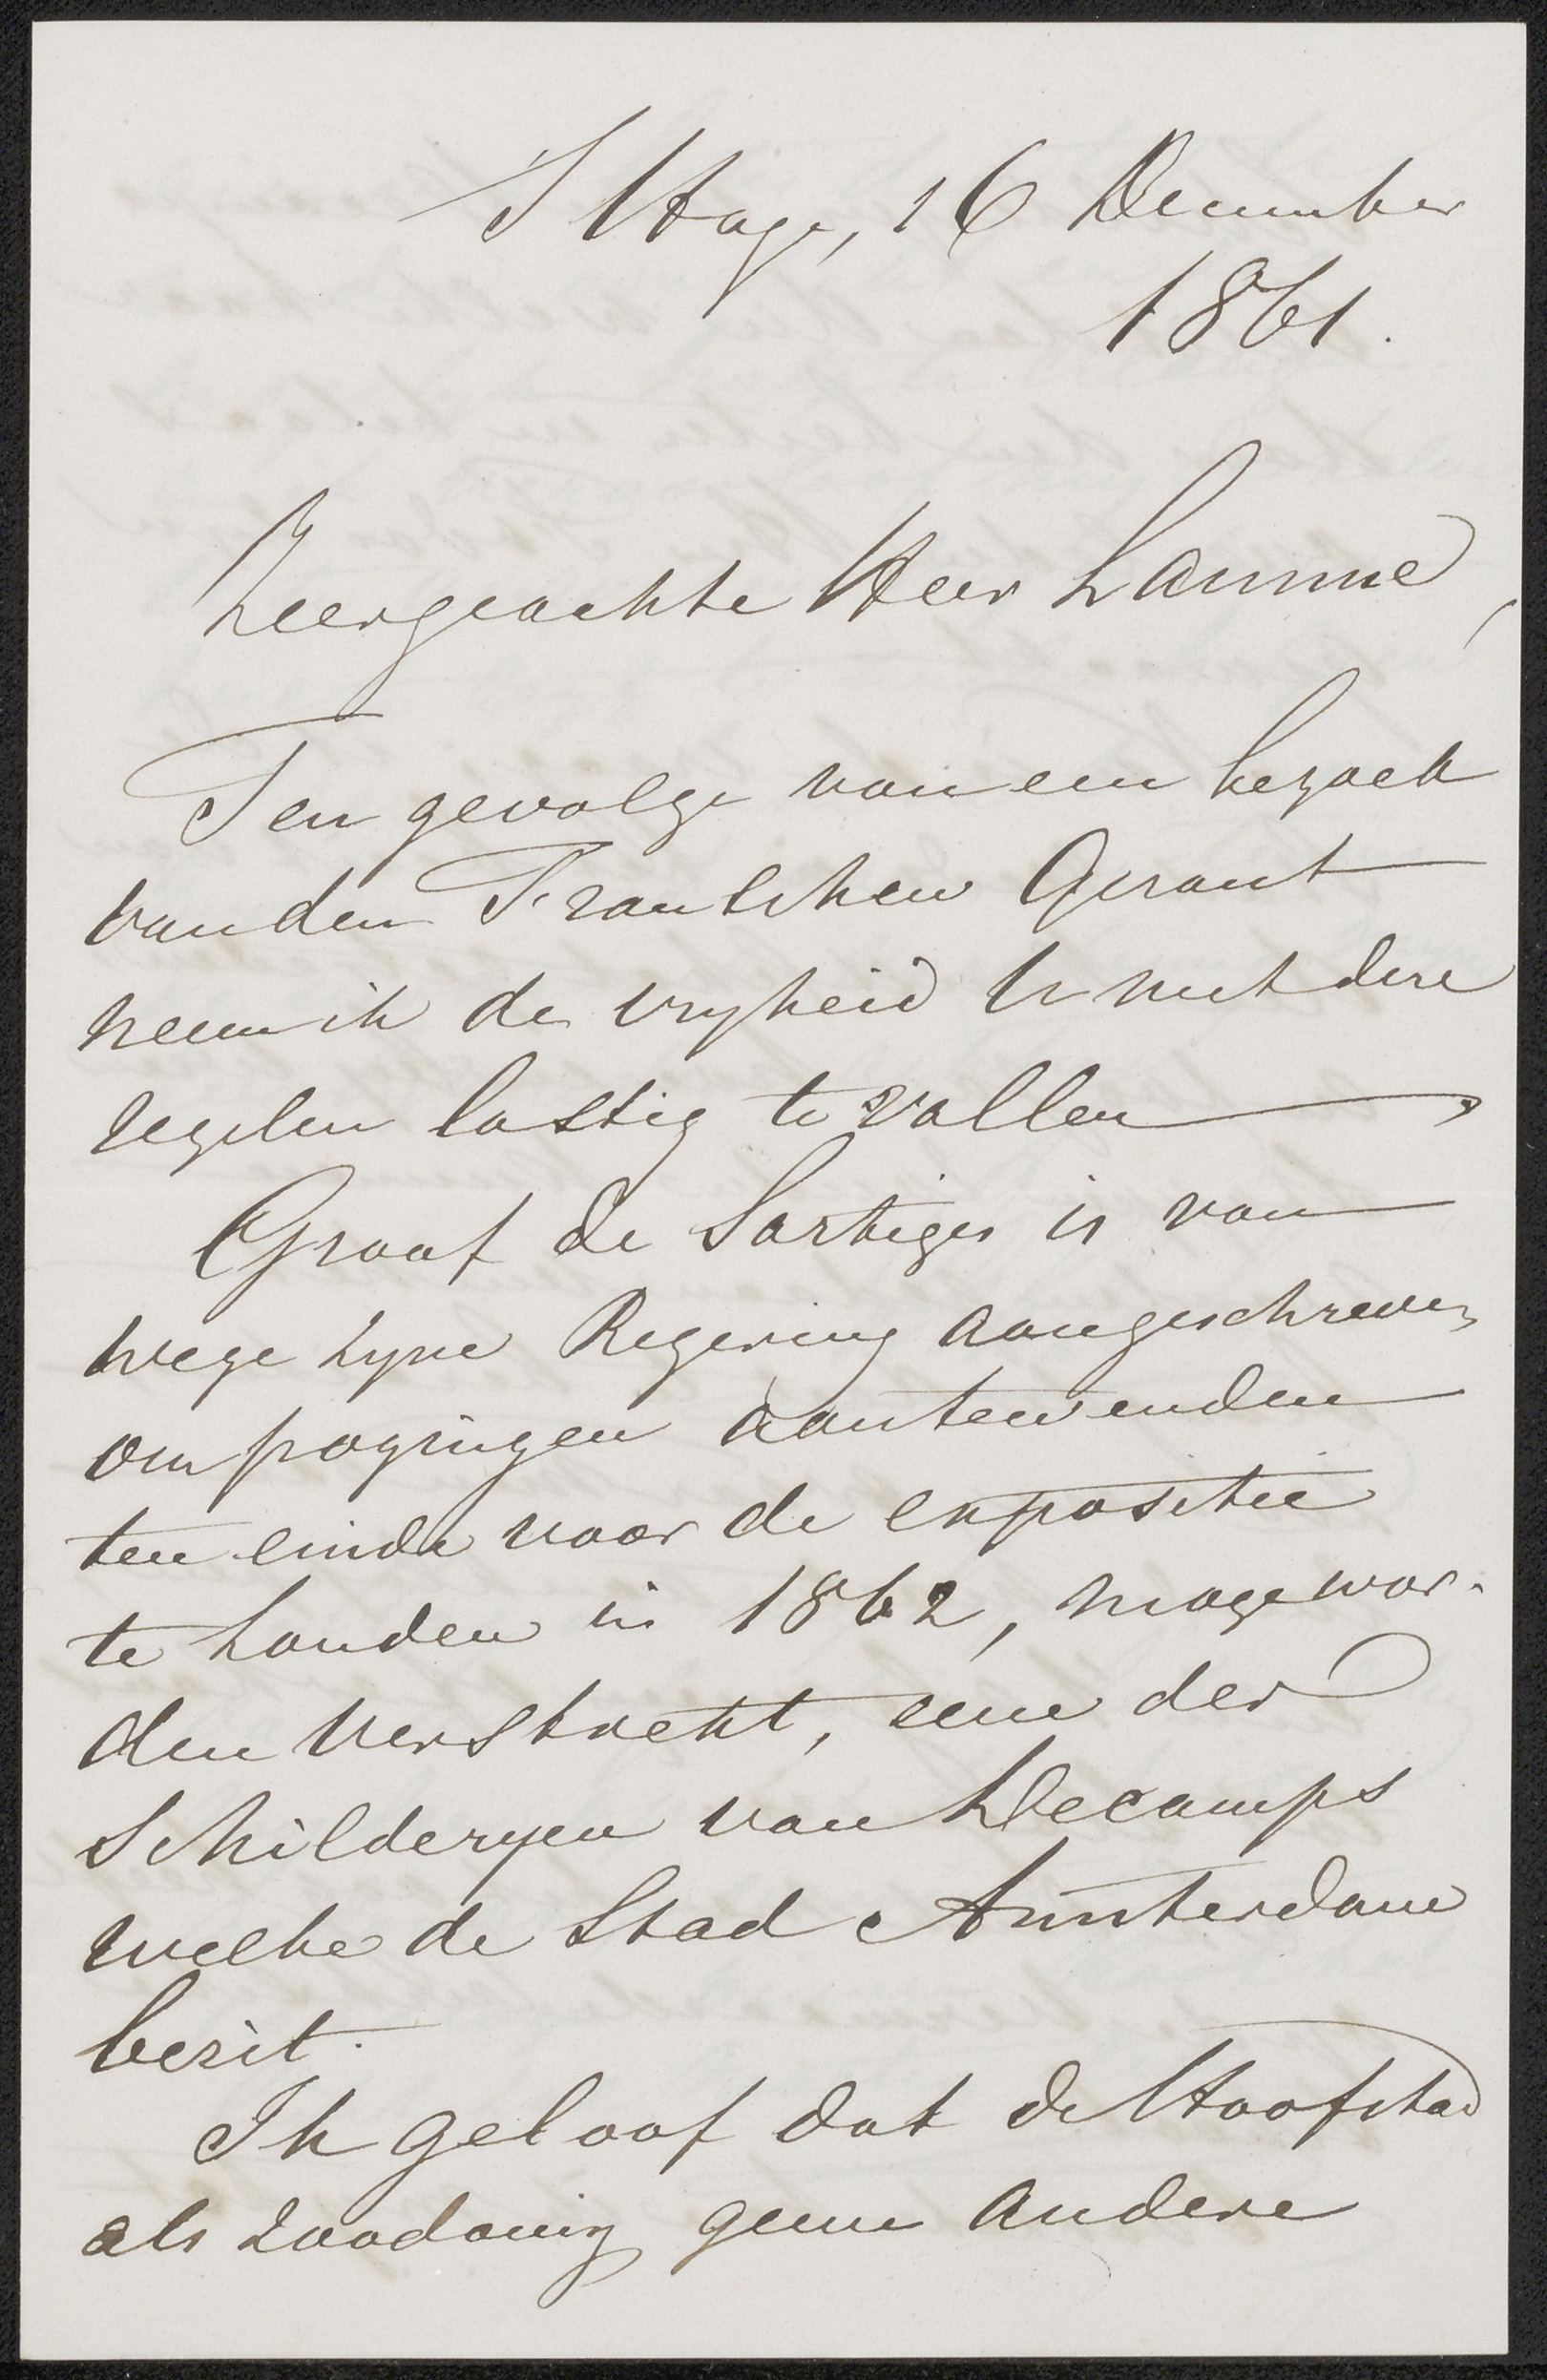 S Hage, 16 December
1861.
Zeergeachte Heer Lamme,
Ten gevolge van een bezoek
van den Franschen Gerant
neem ik de vryheid U met deze
regelen lastig te vallen
Graaf de Sartiges is van
wege zyne Regering aangeschreven
om pogingen aantewenden
ten einde voor de expositie
te Londen in 1862, moge wor-
den verstrekt, eene der
Schilderyen van Decamps
welke de Stad Amsterdam
bezit.
Ik geloof dat de Hoofstad
als zoodanig geene andere